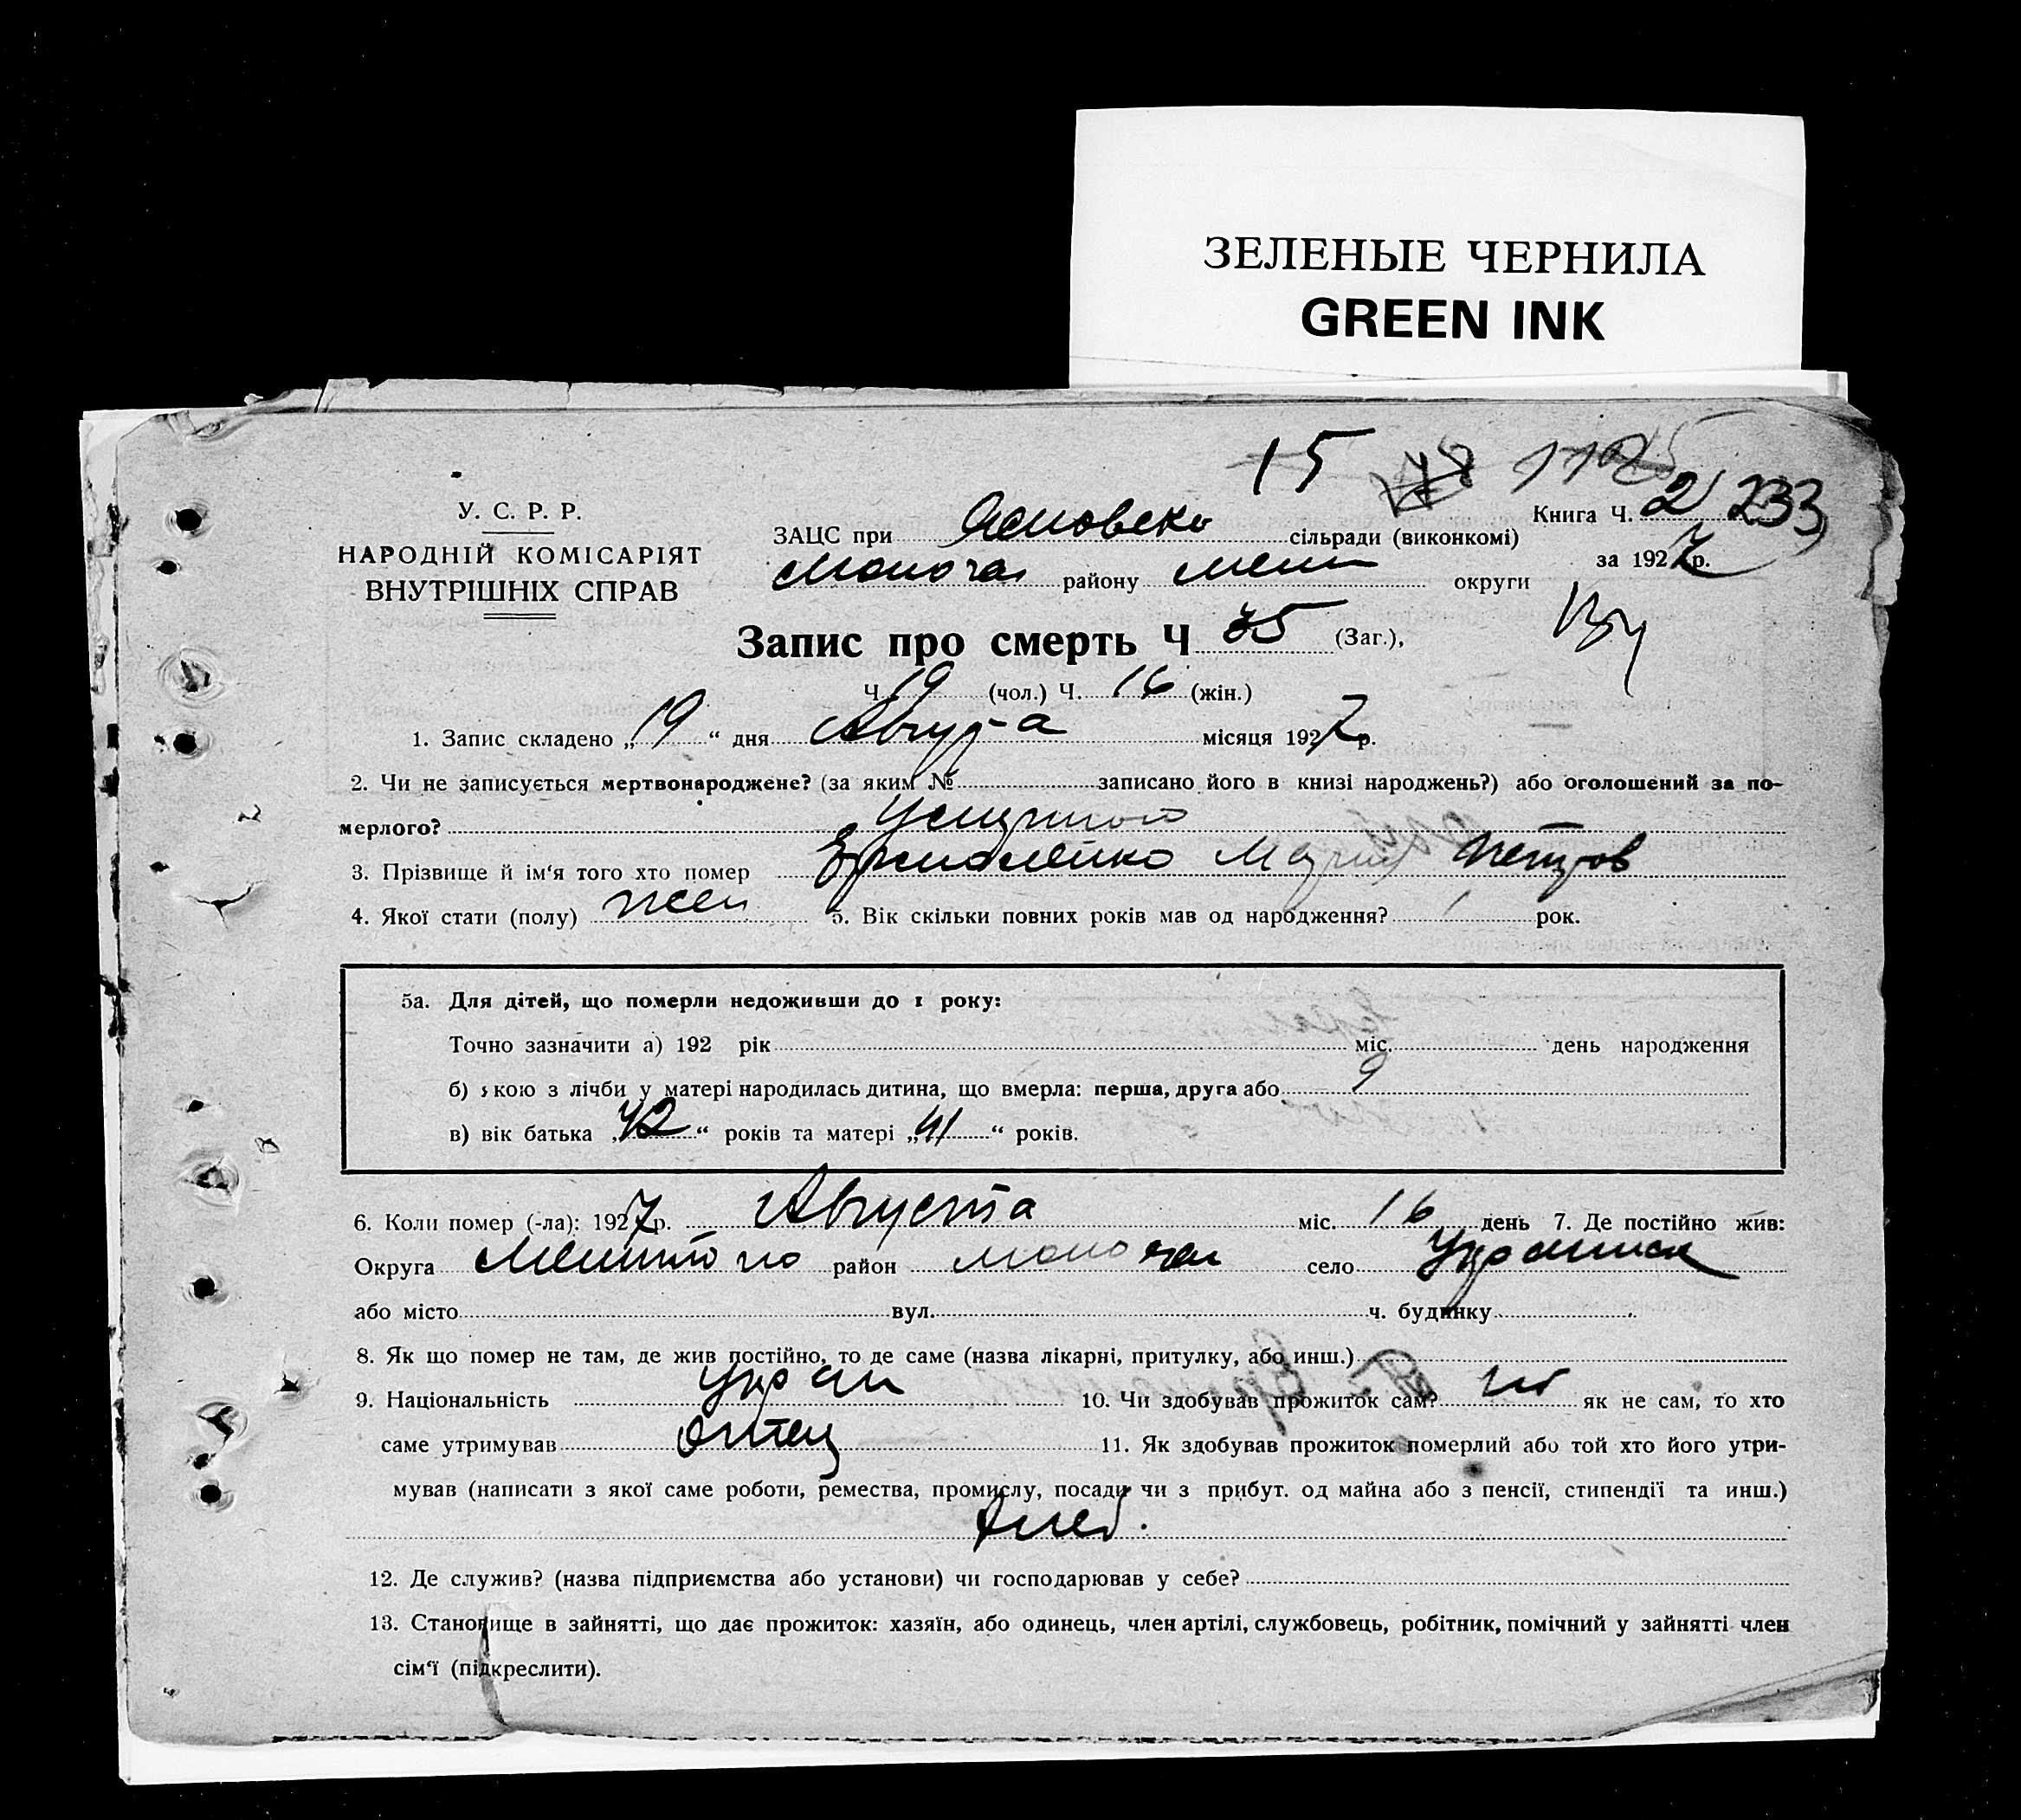 ЗЕЛЕНЫЕ ЧЕРНИЛА
GREEN INK
15
У. С. Р. Р.
НАРОДНІЙ КОМІСАРІЯТ
ВНУТРІШНІХ СПРАВ
Книга Ч. 2 233
за 1927 р.
ЗАЦС при сільради (виконкомі)
району округи
Запис про смерть Ч 35 (Заг.),
Ч 19 (чол.) Ч. 16 (жін.)
1. Запис складено „19“ дня Августа місяця 1927 р.
2. Чи не записується мертвонароджене? (за яким № записано його в книзі народжень?) або оголошений за по-
мерлого?
3. Прізвище й ім‘я того хто помер Ермоленко Мария Петров
4. Якої стати (полу) жен 5. Вік скільки повних років мав од народження? 1 рок.
5а. Для дітей, що померли недоживши до 1 року:
Точно зазначити а) 192 рік міс. день народження
б) якою з лічби у матері народилась дитина, що вмерла: перша, друга або 9
в) вік батька „42“ років та матері „41“ років.
6. Коли помер (-ла): 1927 р. Августа міс. 16 день 7. Де постійно жив:
Округа район село
або місто вул. ч. будинку
8. Як що помер не там, де жив постійно, то де саме (назва лікарні, притулку, або инш.)
9. Національність Украин 10. Чи здобував прожиток сам? як не сам, то хто
саме утримував отец 11. Як здобував прожиток померлий або той хто його утри-
мував (написати з якої саме роботи, ремества, промислу, посади чи з прибут. од майна або з пенсії, стипендії та инш.)
12. Де служив? (назва підприємства або установи) чи господарював у себе?
13. Становище в зайнятті, що дає прожиток: хазяїн, або одинець, член артілі, службовець, робітник, помічний у зайнятті член
сім‘ї (підкреслити).